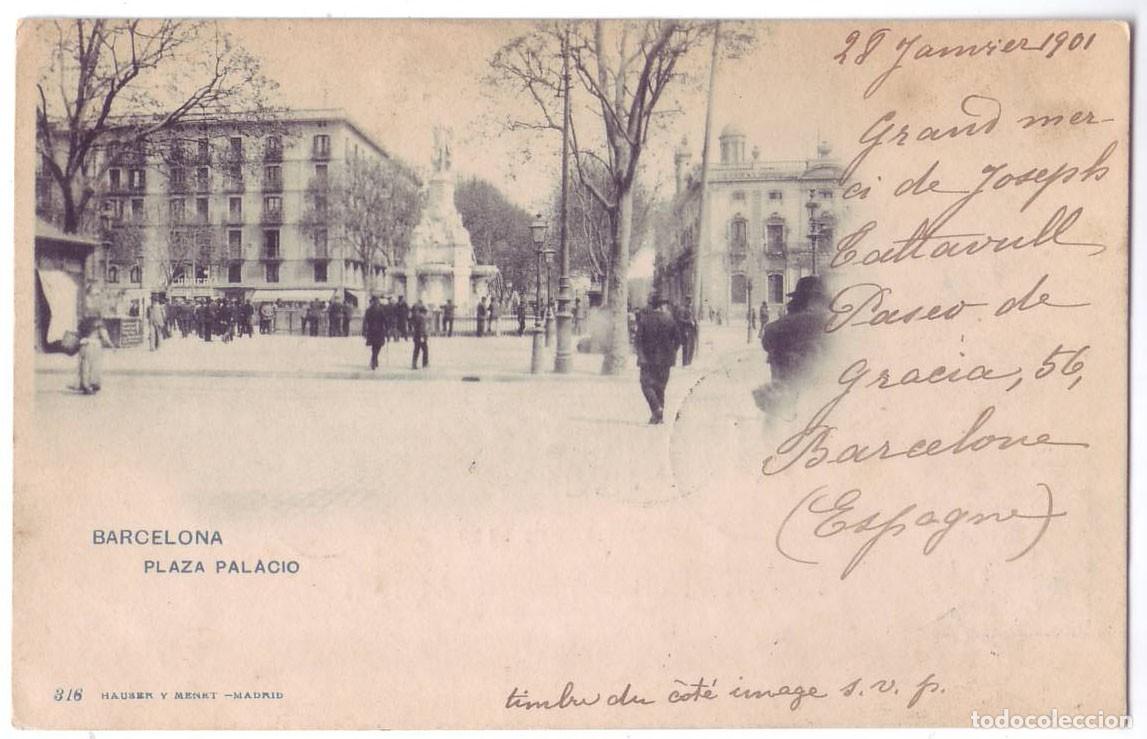 28 Janvier 1901
Grand mer-
ci de Joseph
Cattavull
Paseo de
Gracia, 56,
Barcelone
(Espagne)
BARCELONA
PLAZA PALÁCIO
316 HAUSER Y MENET –MADRID
timbre du côté image s. v. p.
todocoleccion